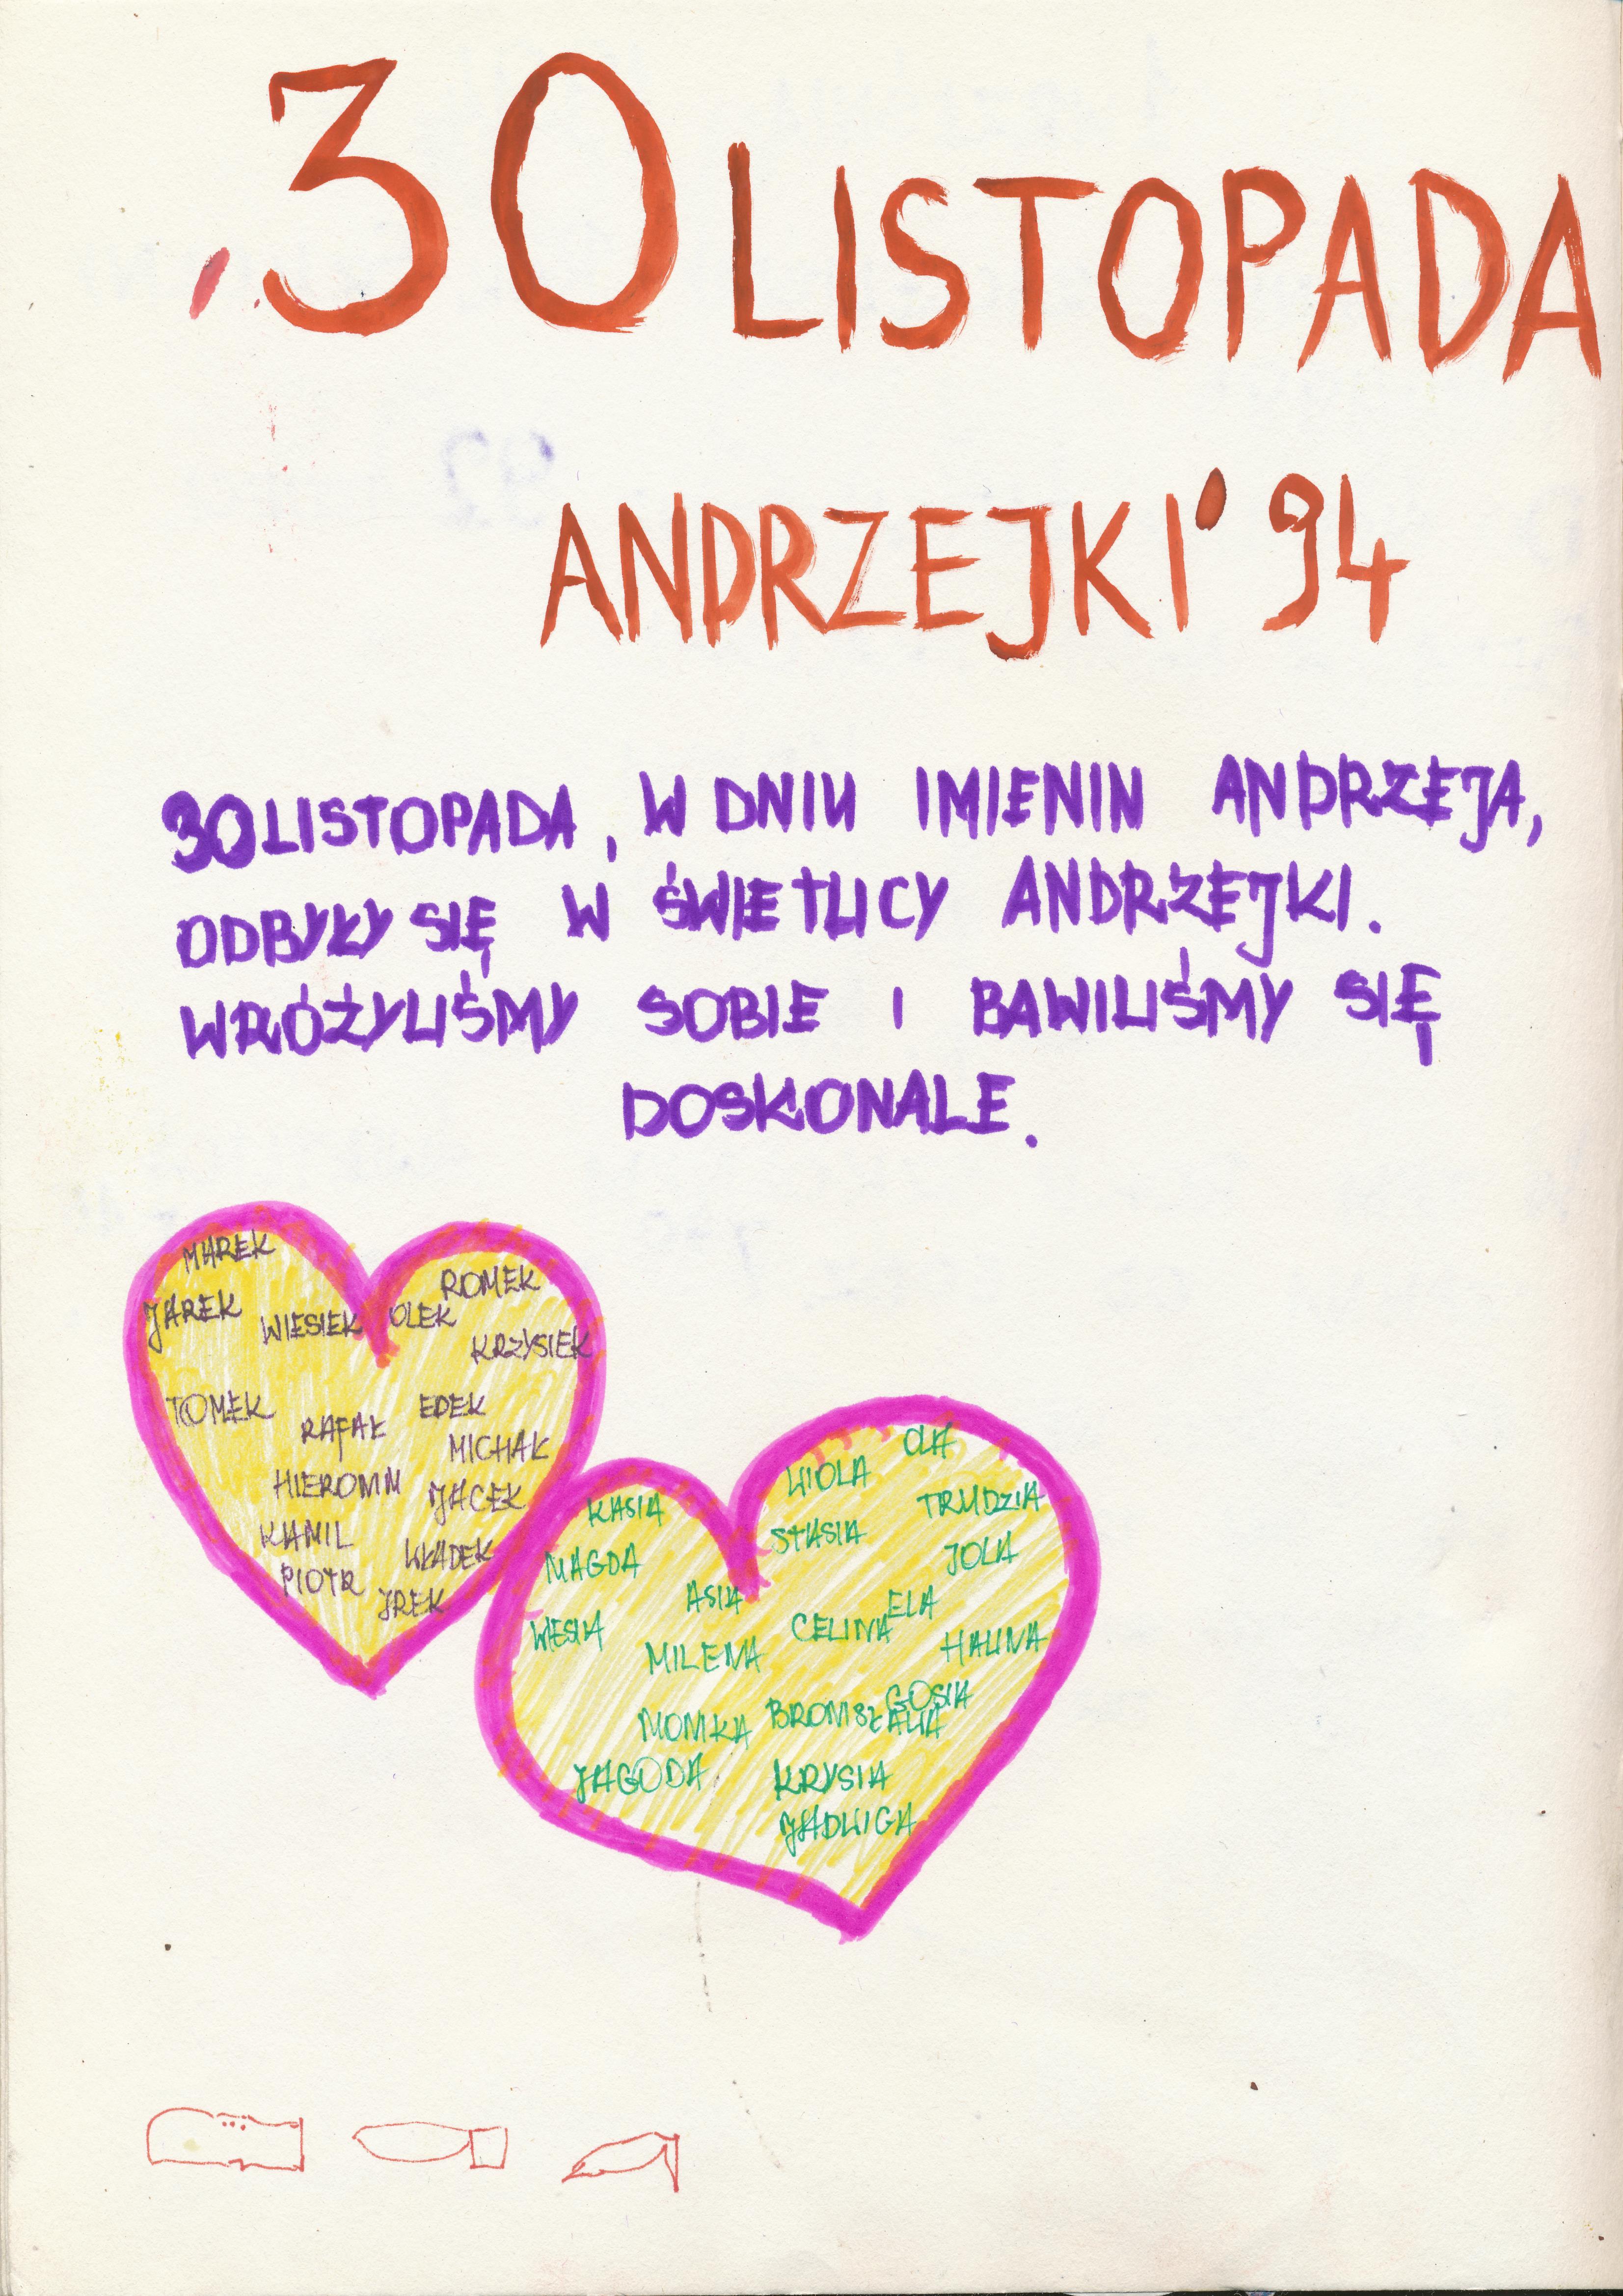 30 LISTOPADA
ANDRZEJKI '94
30 LISTOPADA, W DNIU IMIENIN ANDRZEJA,
ODBYŁY SIĘ W ŚWIETLICY ANDRZEJKI.
WRÓŻYLIŚMY SOBIE I BAWILIŚMY SIĘ
DOSKONALE.
MAREK
ROMEK
JAREK
WIESIEK
OLEK
KRZYSIEK
TOMEK
EDEK
RAFAŁ
MICHAŁ
HIERONIM
JACEK
KAMIL
WŁADEK
PIOTR
IREK
OLA
WIOLA
KASIA
TRUDZIA
STASIA
MAGDA
JOLA
ASIA
ELA
WIESIA
CELINA
HALINA
MILENA
GOSIA
MONIKA
BRONISŁAWA
JAGODA
KRYSIA
JADWIGA